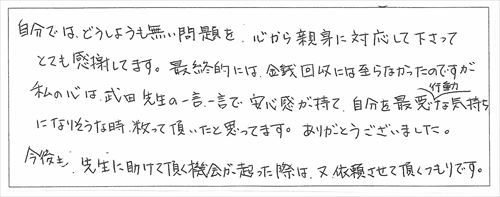 自分では、どうしようも無い問題を、心から親身に対応して下さって
とても感謝してます。最終的には、金銭回収には至らなかったのですが
私の心は、武田先生の一言、一言で安心感が持て、自分を最悪な行動気持ち
になりそうな時、救って頂いたと思ってます。ありがとうございました。
今後も、先生に助けて頂く機会が起った際は、又依頼させて頂くつもりです。